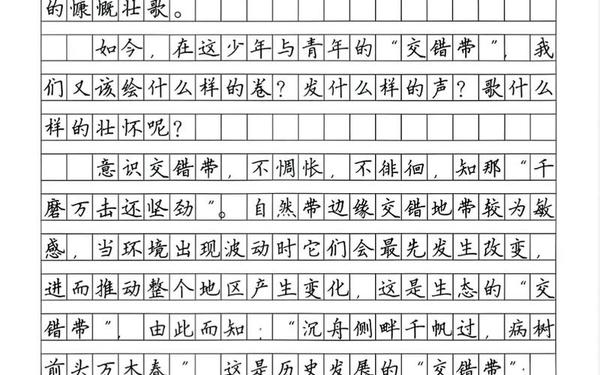 的慷慨壮歌。
如今，在这少年与青年的“交错带”，我
们又该绘什么样的卷？发什么样的声？歌什么
样的壮怀呢？
意识交错带，不惆怅，不徘徊，知那“千
磨万击还坚劲”。自然带边缘交错地带较为敏
感，当环境出现波动时它们会最先发生改变，
进而推动整个地区产生变化，这是生态的“交
错带”，由此而知：“沉舟侧畔千帆过，病树
前头万木春”，这是历史发展的“交错带”；